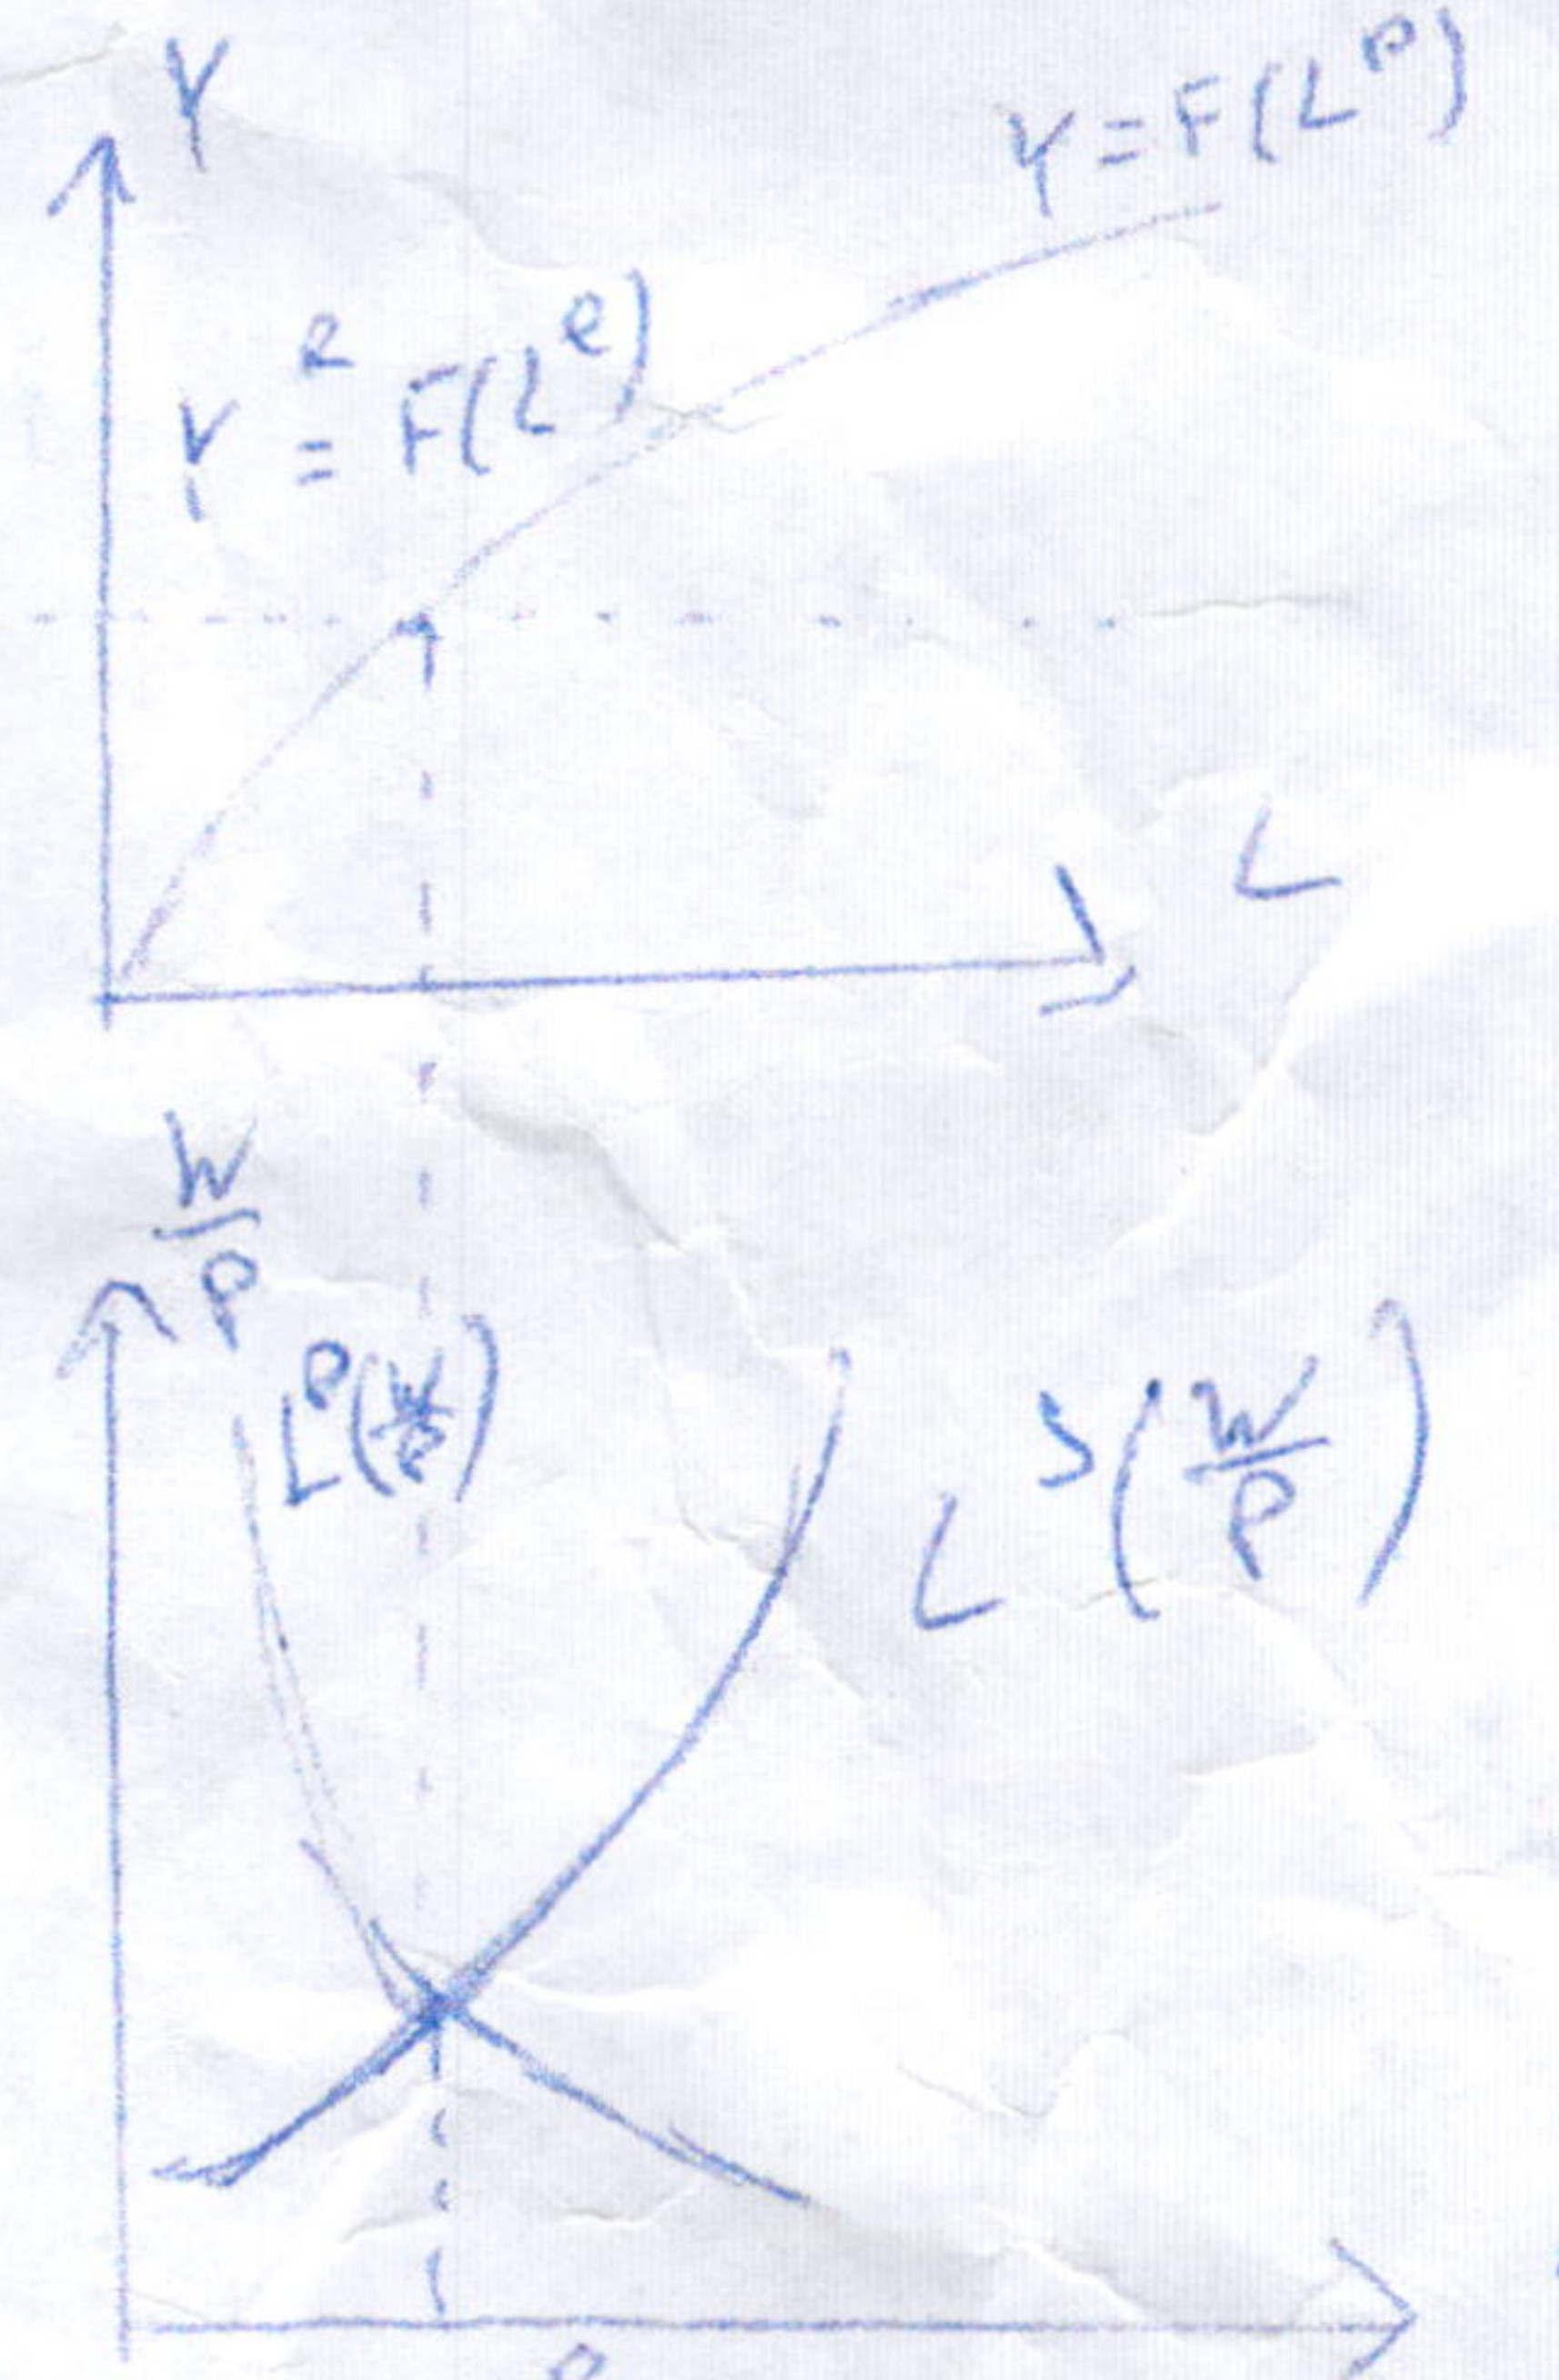 Y
Y = F(L^D)
Y^e = F(L^e)
L
W/P
L^D(W/P)
L^S(W/P)